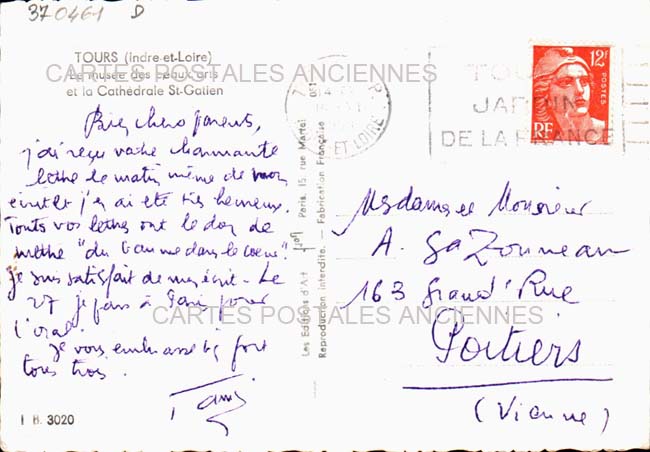 370461 D
TOURS (Indre-et-Loire)
Le musée des beaux arts
et la Cathédrale St-Gatien
CARTES POSTALES ANCIENNES
Bien chers parents,
j'ai reçu votre charmante
lettre le matin même de mon
écrit et j'en ai été très heureux.
Toutes vos lettres ont le don de
mettre "du baume dans le coeur".
Je suis satisfait de mes écrit - Le
27 je pars à Paris pour
l'oral.
Je vous embrasse bien fort
tous trois.
I B. 3020
Les Editions d'Art Paris, 15, rue Martel
Reproduction interdite. - Fabrication Française
ET LOIRE
12F
POSTES
RF
TOURS
JARDIN
DE LA FRANCE
Madame et Monsieur
A.
163 Grand' Rue
Poitiers
(Vienne)
CARTES POSTALES ANCIENNES